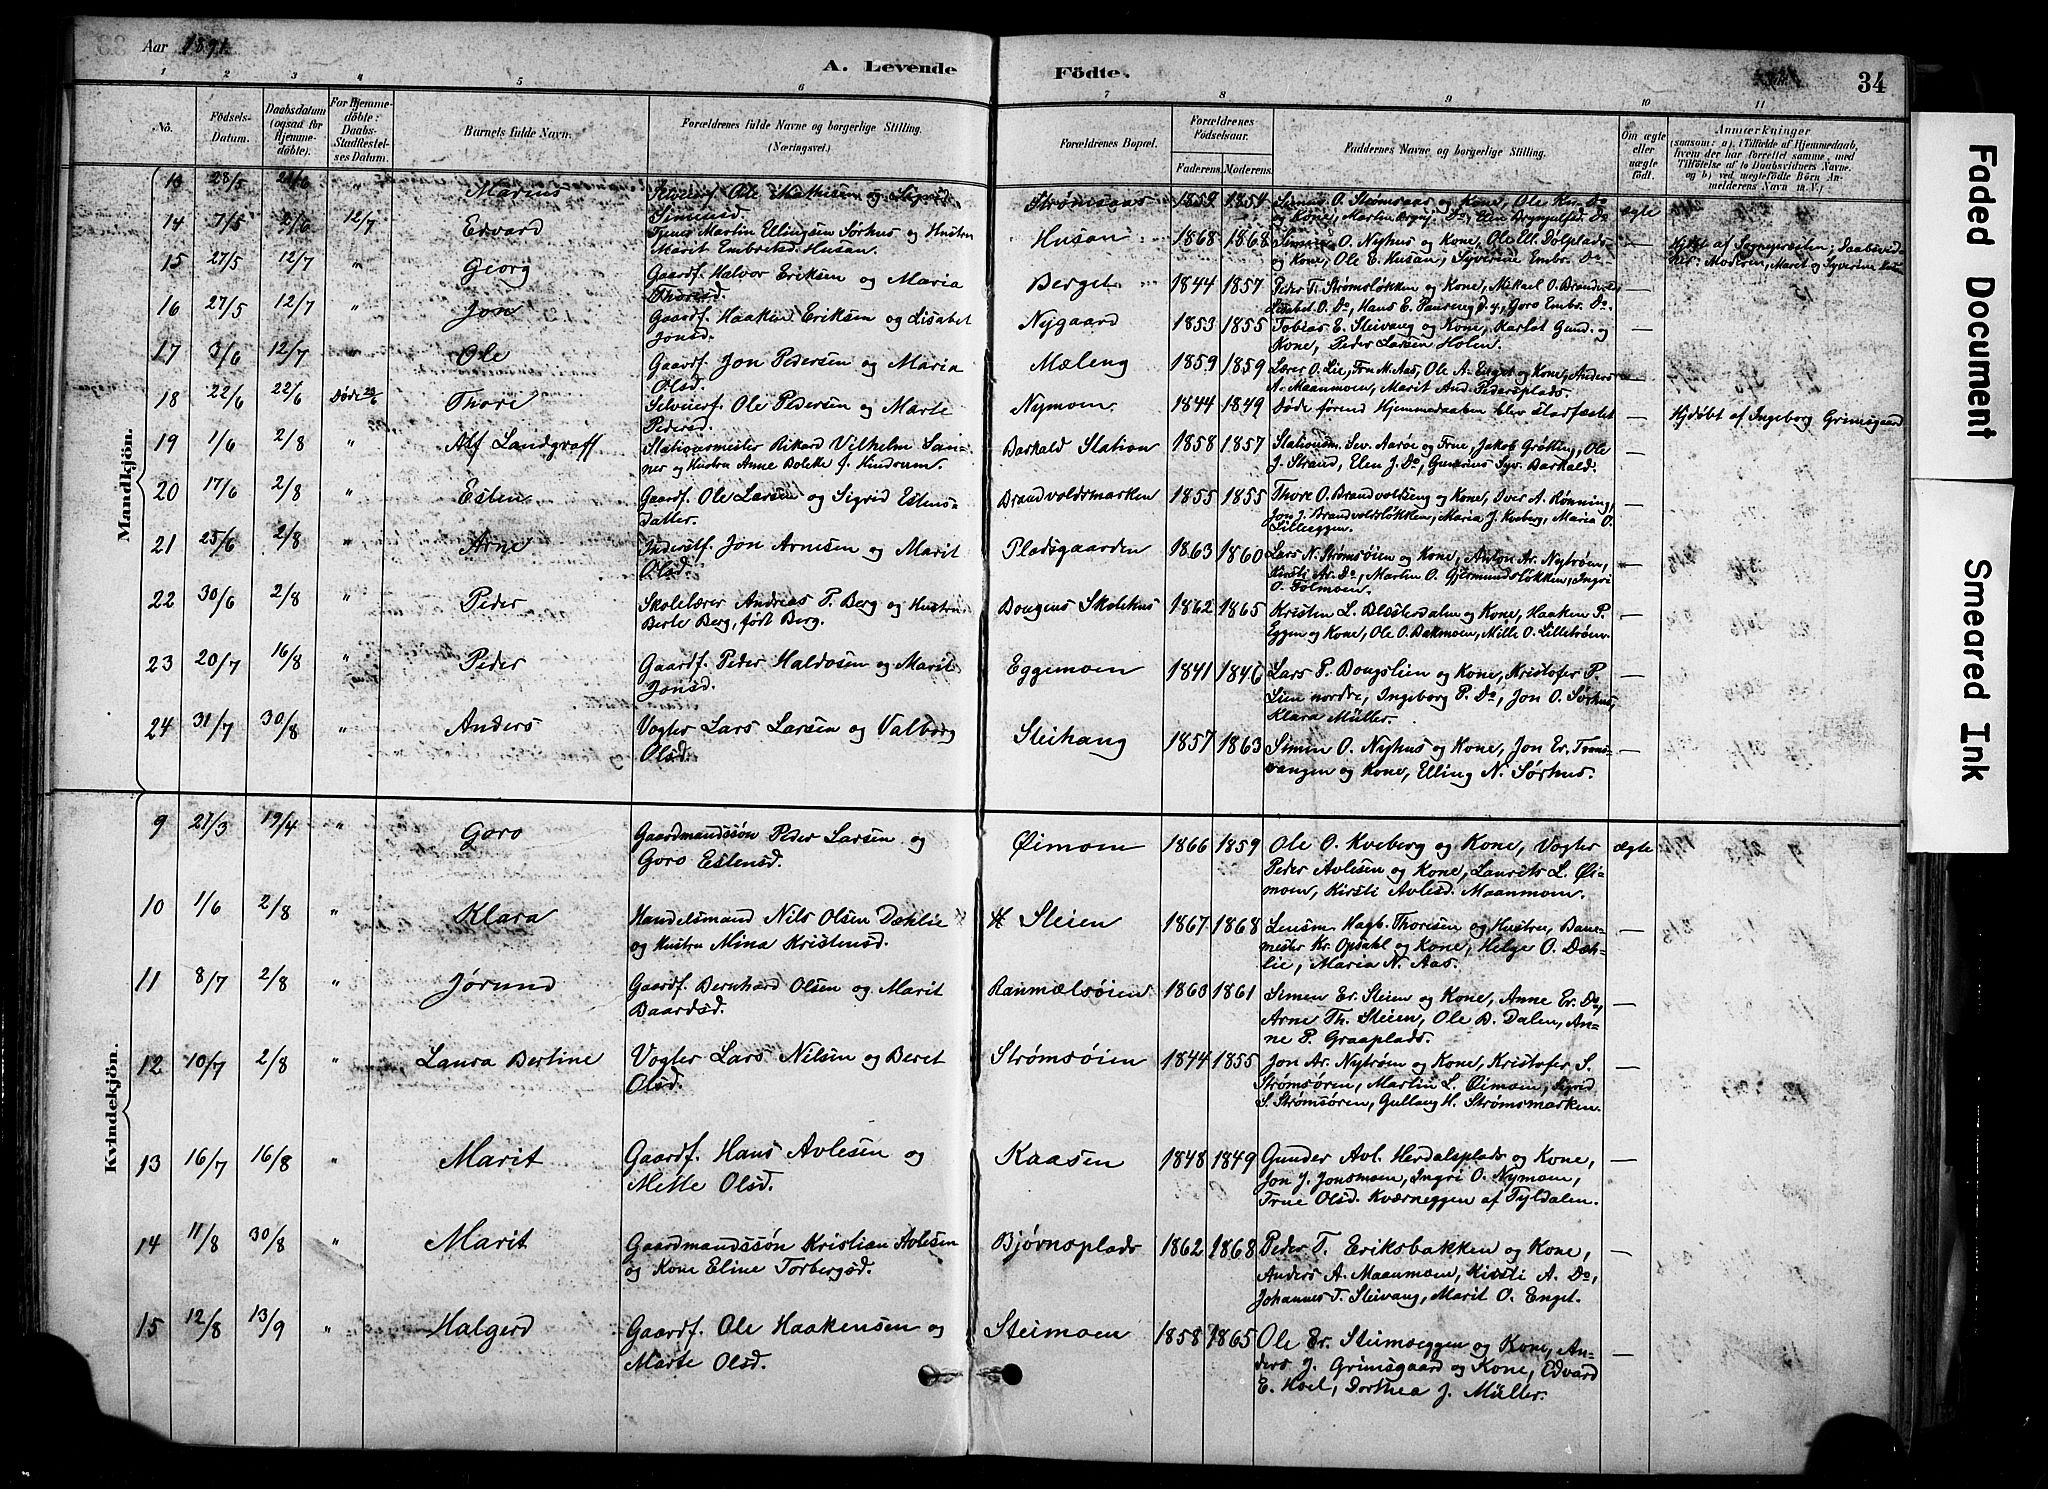 Aar 1891.
A. Levende Födte.
34
1 2 3 " 5 6 7 8 9 10 11
No. Födsels-Datum. Daabsdatum (ogsaa for Hjemmedöbte). For Hjemmedöbte: Daabs-Stadfestelses Datum. Barnets fulde Navn. Forældrenes fulde Navne og borgerlige Stilling. (Næringsvei.) Forældrenes Bopæl. Forældrenes Födselsaar. Faderens. Moderens. Faddernes Navne og borgerlige Stilling. Om ægte eller uægte födt. Anmærkninger
Mandkjön.
13 28/5 21/6 " Marius Ole Mathisen og Sigrid Simensd. Strømsaas 1859 1854 Simen O. Strømsaas og Kone, Ole Ker. Do og Kone, Martin Brynj. Do, Elen Brynjulfsd. Do ægte
14 7/5 2/6 12/7 Edvard Martin Ellingsen Sørhus og Hustru Marit Embretsd. Husan. Husan 1868 1868 Simen O. Nyhus og Kone, Ole El. Dølplads og Kone, Ole E. Husan, Syverine Embr. Do — Hjdøbt af
15 27/5 12/7 " Georg Gaardf. Halvor Eriksen og Maria Thoresd. Berget 1844 1857 Peder T. Strømsløkken og Kone, Mikael O. Brandvold, Lisabet O. Do, Hans E. Goro Embr. Do —
16 27/5 12/7 " Jon Gaardf. Haaken Eriksen og Lisabet Jonsd. Nygaard 1853 1855 Tobias E. Steivang og Kone, Gund. og Kone, Peder Larsen Holen. —
17 3/6 12/7 " Ole Gaardf. Jon Pedersen og Maria Olsd. Mæleng 1859 1859 Lærer O. Lie, Fru M. Aas, Ole A. Enget og Kone, Anders A. Maanmoen, Marit And. Pedersplads. —
18 22/6 22/6 Døde 23/6 Thore Selveierf. Ole Pedersen og Marte Pedersd. Nymoen 1844 1849 Døde førend Hjemmedaaben blev stadfæstet — Hjdøbt af Ingeborg Grimsgaard
19 1/6 2/8 " Alf Landgraff Stationsmester Rikard Vilhelm Sainner og Hustru Anne Boleke f. Hindrum. Barkald Station 1858 1857 Stationsm. Sev. Aarøe og Frue, Jakob Grøtting, Ole J. Strand, Elen J. Do, Gunerius Syv. Barkald. —
20 17/6 2/8 " Esten Gaardf. Ole Larsen og Sigrid Estensdatter. Brandvoldsmarken 1855 1855 Thore O. Brandvoldeng og Kone, Iver A. Rønning, Jon J. Brandvoldsløkken, Maria J. Kveberg, Maria O. Lilleeggen. —
21 25/6 2/8 " Arne Inderstf. Jon Arnesen og Marit Olsd. Pladsgaarden 1863 1860 Lars N. Strømsøien og Kone, Anton Ar. Nytrøen, Kirsti Ar. Do, Martin O. Gjermundsløkken, Ingri O. Tolmoen. —
22 30/6 2/8 " Peder Skolelærer Andreas P. Berg og Hustru Berte Berg, født Berg. Bougens Skolehus 1862 1865 Kristen L. Blæsterdalen og Kone, Haaken P. Eggen og Kone, Ole O. Bakmoen, Mille O. Lilletrøen. —
23 20/7 16/8 " Peder Gaardf. Peder Haldosen og Marit Jonsd. Eggemoen 1841 1846 Lars P. Bougslien og Kone, Kristofer P. Lien nordre, Ingeborg P. Do, Jon O. Sørhus, Klara Müller. —
24 31/7 30/8 " Anders Vogter Lars Larsen og Valborg Olsd. Steihaug 1857 1863 Simen O. Nyhus og Kone, Jon Er. Tronsvangen og Kone, Elling N. Sørhus. —
Kvindekjön.
9 21/3 19/4 " Goro Gaardmandssøn Peder Larsen og Goro Estensd. Øimoen 1866 1859 Ole O. Kveberg og Kone, Vogter Peder Avlesen og Kone, Laurits L. Øimoen, Kirsti Avlesd. Maanmoen. ægte
10 1/6 2/8 " Klara Handelsmand Nils Olsen Dæhlie og Hustru Mina Kristensd. Steien 1867 1868 Lensm. Hagb. Thoresen og Hustru, Banemester Kr. Opdahl og Kone, Helge O. Dæhlie, Maria N. Aas. —
11 8/7 2/8 " Jørund Gaardf. Bernhard Olsen og Marit Baardsd. Raumælsøien 1860 1861 Simen Er. Steien og Kone, Anne Er. Do, Arne Th. Steien, Ole B. Dalen, Anne P. Graaplads. —
12 10/7 2/8 " Laura Bertine Vogter Lars Nilsen og Beret Olsd. Strømsøien 1844 1855 Jon Ar. Nytrøen og Kone, Kristofer S. Strømsøren, Martin L. Øimoen, Sigrid S. Strømsøren, Gullaug H. Strømsmarken. —
13 16/7 16/8 " Marit Gaardf. Hans Avlesen og Mette Olsd. Kaasen 1848 1849 Gunder Avl. Herdalsplads og Kone, Jon J. Jonsmoen, Ingri O. Nymoen, True Olsd. Kværneggen af Tyldalen. —
14 11/8 30/8 " Marit Gaardmandssøn Kristian Avlesen og Kone Eline Torbergsd. Bjørnsplads 1862 1868 Peder T. Eriksbakken og Kone, Anders A. Maanmoen, Kirsti A. Do, Johannes T. Steivang, Marit O. Enget. —
15 12/8 13/9 " Halgerd Gaardf. Ole Haakensen og Marte Olsd. Steimoen 1858 1865 Ole Er. Steimoeggen og Kone, Anders J. Grimsgaard og Kone, Edvard E. Hoel, Dorthea J. Müller. —
Faded Document
Smeared Ink